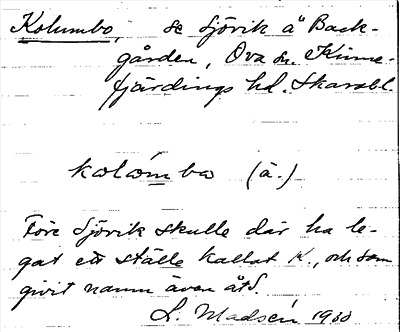 Kolumbo, se Sjövik å Back-
gården, Ova sn Kinne-
fjärdings hd. Skarabl.
kolómbo (à.)
Före Sjövik skulle där ha le-
gat ett ställe kallat K., och som
givit namn även åt S.
L. Madsén 1930